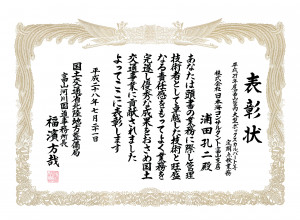 表彰状
平成27年度富山管内大型ボックスカルバート等
定期点検業務
株式会社 日本海コンサルタント 富山支店
浦田孔二 殿
あなたは頭書の業務に際し管理
技術者として卓越した技術と旺盛
なる責任感をもってよく業務を
完遂し優秀な成果をおさめ国土
交通事業に貢献されました
よってここに表彰します
平成二十八年七月二十一日
国土交通省北陸地方整備局
富山河川国道事務所長
福濱方哉